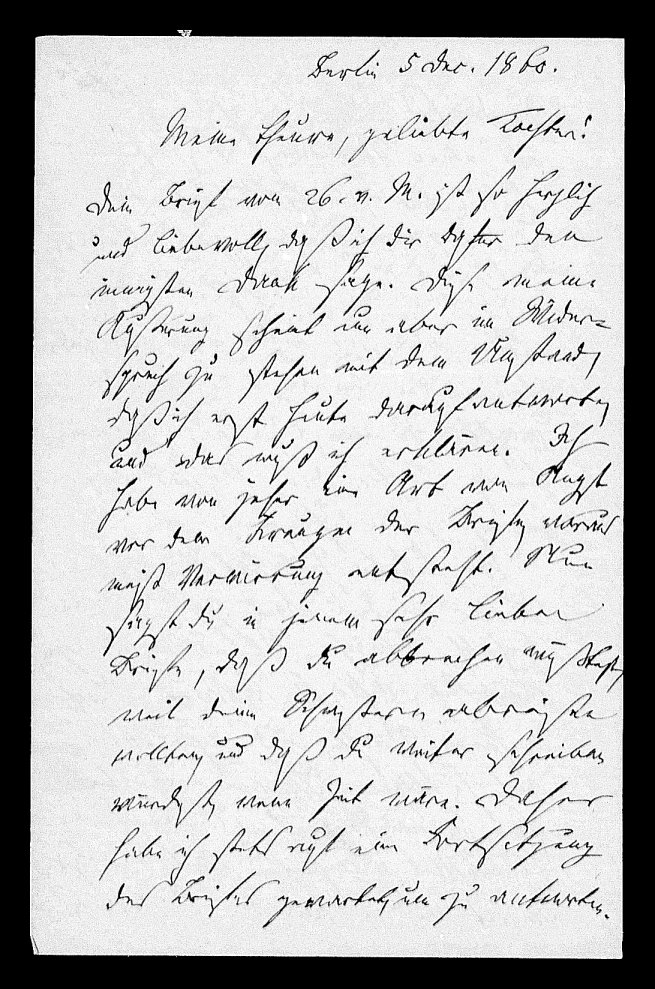 Berlin 5 Dec. 1860.
Meine theure, geliebte Tochter!
Dein Brief vom 26. v. M. ist so herzlich
und liebevoll, daß ich dir dafür den
innigsten Dank sage. Diese meine
Äußerung scheint nun aber im Wider-
spruch zu stehen mit dem Umstand,
daß ich erst heute darauf antworte,
und das muß ich erklären. Ich
habe von jeher eine Art von Angst
vor dem Kreuzen der Briefe, woraus
meist Verwirrung entsteht. Nun
sagst du in jenem sehr lieben
Briefe, daß du abbrechen müßtest,
weil deine Schwestern abreisen
wollten, und daß du weiter schreiben
würdest, wenn Zeit wäre. Daher
habe ich stets auf eine Fortsetzung
des Briefes gewartet, um zu antworten.